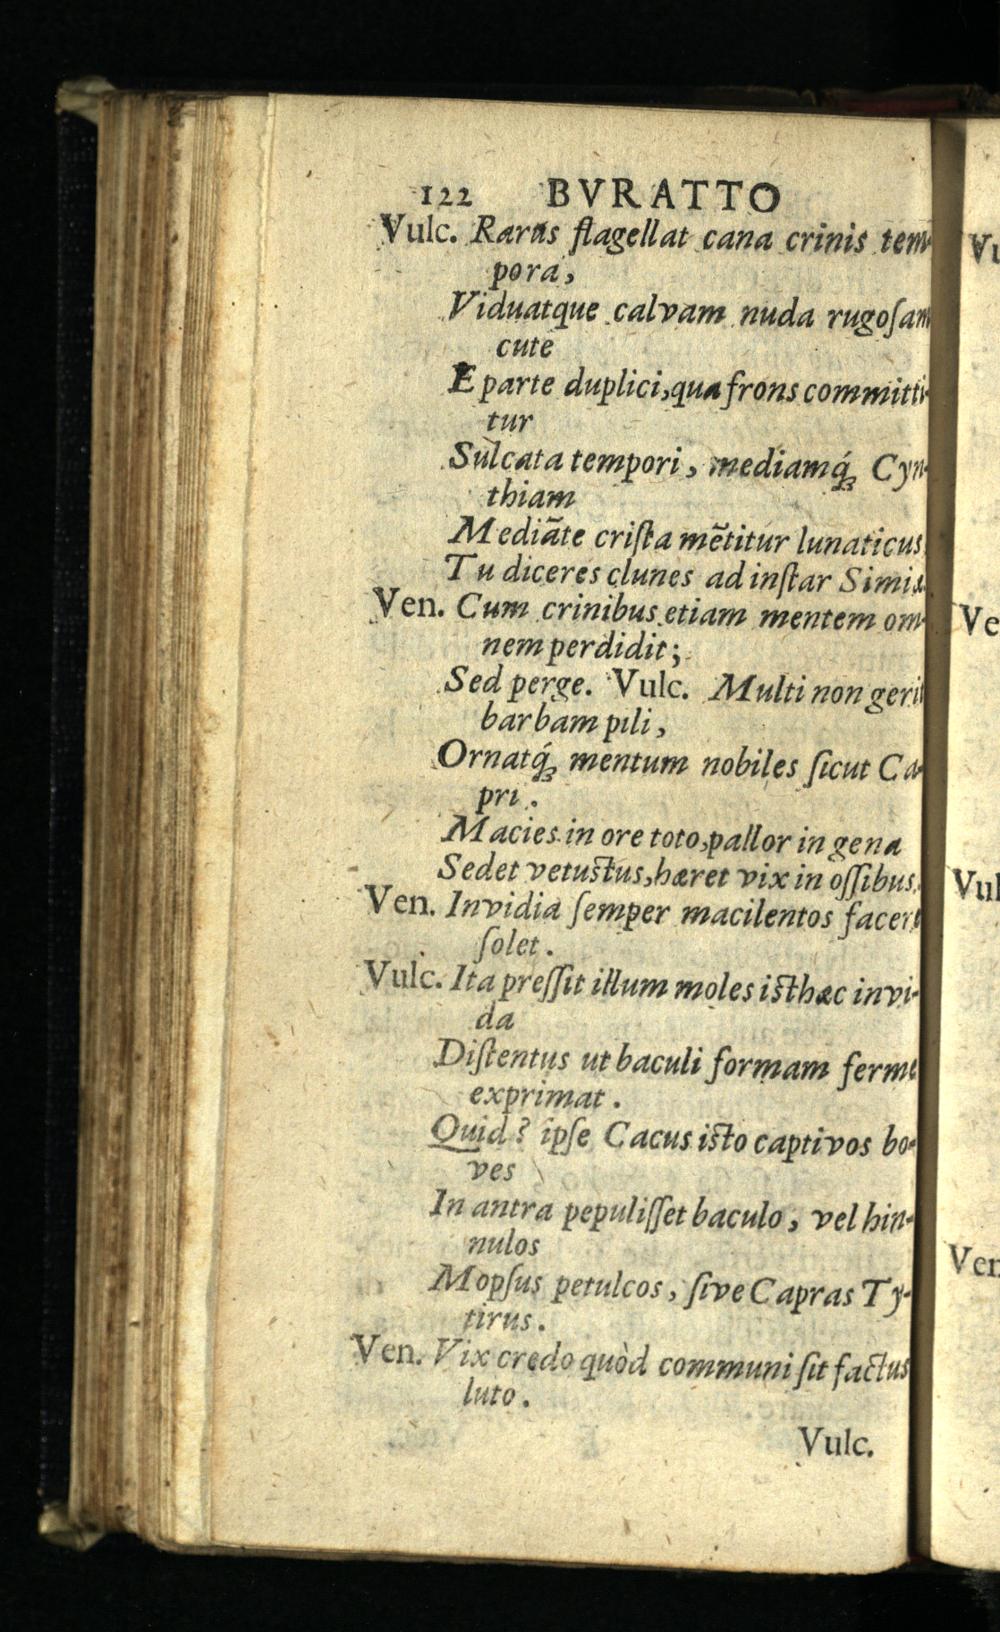 122 BVRATTO
Vulc. Rarus flagellat cana crinis tem-
pora,
Viduatque calvam nuda rugoſam
cute
E parte duplici, qua frons committi-
tur
Sulcata tempori, mediamq́; Cyn-
thiam
Mediāte criſta mẽtitur lunaticus,
Tu diceres clunes ad inſtar
Ven. Cum crinibus etiam mentem om-
nem perdidit;
Sed perge. Vulc. Multi non
barbam pili,
Ornatq́; mentum nobiles ſicut Ca-
pri.
Macies in ore toto, pallor in gena
Sedet vetuſtus, hæret vix in oſſibus.
Ven. Invidia ſemper macilentos facere
ſolet.
Vulc. Ita preſſit illum moles iſthæc invi-
da
Diſtentus ut baculi formam ferme
exprimat.
Quid? ipſe Cacus iſto captivos bo-
ves
In antra pepuliſſet baculo, vel hin-
nulos
Mopſus petulcos, ſive Capras Ty-
tirus.
Ven. Vix credo quòd communi ſit factus
luto.
Vulc.
Vu
Ve
Vul
Ven